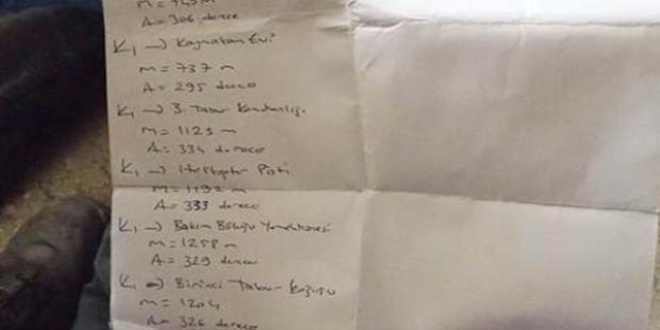 M = 745 m
A = 306 derece
K1 → Kaymakam Evi
M = 737 m
A = 295 derece
K1 → 3. Tabur Komutanlığı
M = 1125 m
A = 334 derece
K1 → Helikopter Pisti
M = 1192 m
A = 333 derece
K1 → Bakım Bölüğü Yemekhanesi
M = 1258 m
A = 329 derece
K1 → Birinci Tabur Koğuşu
M = 1204
A = 326 derece